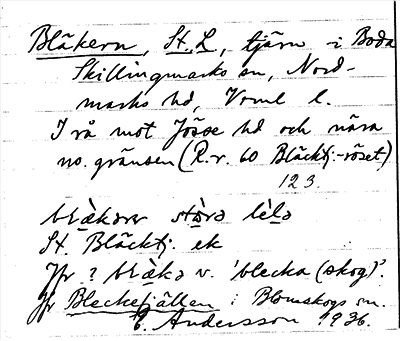 Bläkern, St. L, tjärn i Boda
Skillingmarks sn, Nord-
marks hd, Verml l.
I rå mot Jösse hd och nära
no. gränsen (R.r. 60 Bläcktj.-röset)
123.
brækɘrer stòra lèla
St. Bläcktj. ek
Jfr ? brækɘ v. 'blecka (skog)'.
Jfr Bleckefjällen i Blomskogs sn.
E. Andersson 1936.